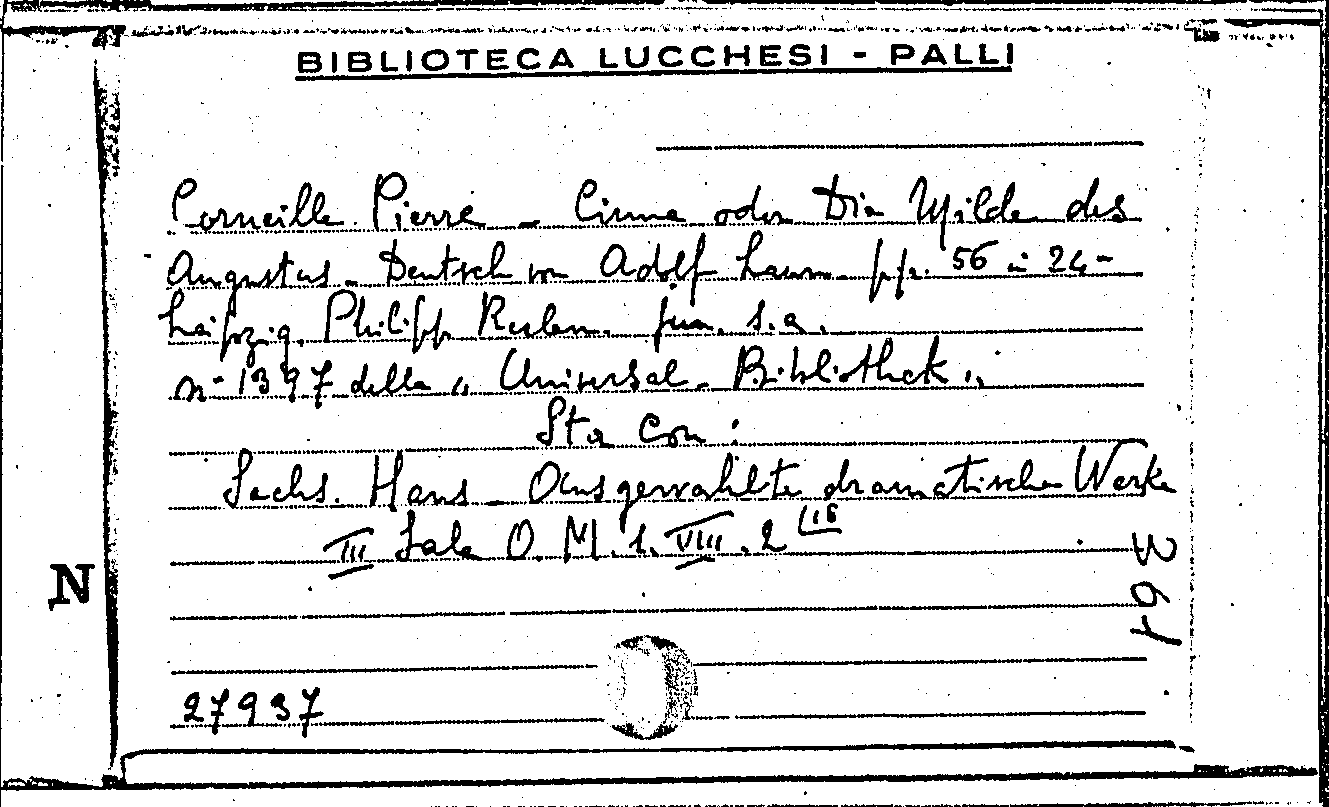 BIBLIOTECA LUCCHESI - PALLI
Corneille Pierre - Cinna oder Die Milde des
Augustus - Deutsch von Adolf Laun - pp. 56 in 24-
Leipzig. Philipp Reclam. jun. s.a.
n° 1397 della "Universal - Bibliothek"
Sta con:
Sachs. Hans - Ausgewahlte dramatische Werke
III Sala O. M. 1. VIII. 2 (16
27937
N